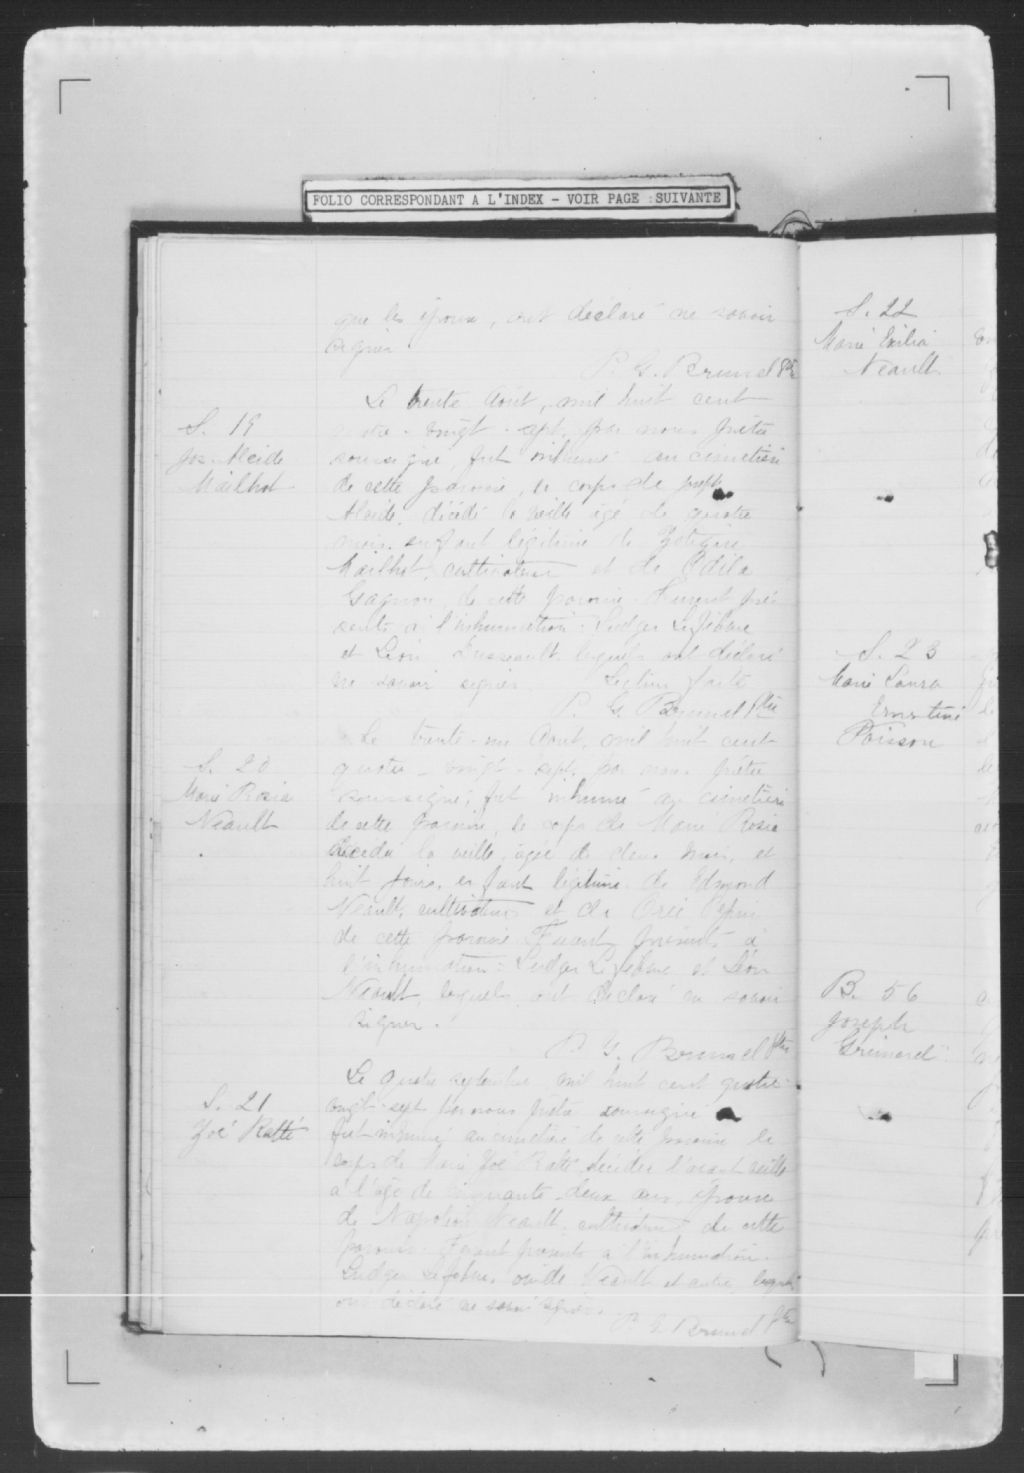 FOLIO CORRESPONDANT A L'INDEX – VOIR PAGE :SUIVANTE
que les époux, ont déclaré ne savoir
signer
P. G. Brunel Ptre
S. 19
Jos. Alcide
Mailhot
Le trente Août, mil huit cent
quatre - vingt - sept, par nous prêtre
soussigné, fut inhumé au cimetière
de cette paroisse, le corps de Joseph
Alcide, décédé la veille agé de quatre
mois, enfant légitime de
Mailhot, cultivateur et de Odila
Gagnon, de cette paroisse. Furent pré
sents à l'inhumation : Ludger Lefebvre
et Léon lesquels ont déclaré
ne savoir signer. Lecture faite
P. G. Brunel Ptre
S. 20
Marie Rosia
Neault
Le trente - un Aout, mil huit cent
quatre - vingt - sept, par nous prêtre
soussigné, fut inhumé au cimetière
de cette paroisse, le corps de Marie Rosia
décédée la veille, agée de deux mois, et
huit jours, enfant légitime de Edmond
Neault, cultivateur et de
de cette paroisse. Furent présents à
l'inhumation : Ludger Lefebvre et Léon
Neault, lesquels ont déclaré ne savoir
signer.
P. G. Brunel Ptre
S. 21
Zoé Ratté
Le quatre septembre, mil huit cent quatre-
vingt-sept par nous prêtre soussigné
fut inhumé au cimetière de cette paroisse le
corps de Marie Zoé Ratté, décédée l'avant veille
à l'âge de cinquante-deux ans, épouse
de Napoléon Neault, cultivateur de cette
paroisse. Furent présents à l'inhumation
Ludger Lefebvre, Neault et autres, lesquels
ont déclaré ne savoir signer.
P. G. Brunel Ptre
S. 22
Marie Exilia
Neault
S. 23
Marie Laura
Ernestine
Poisson
B. 56
Joseph